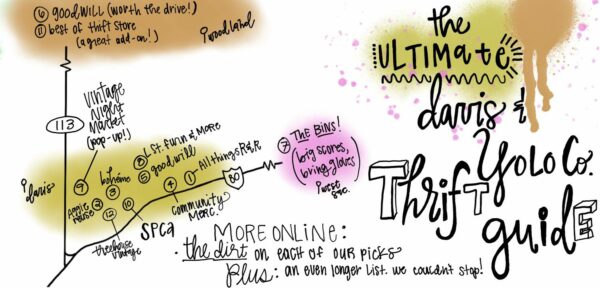 ⑥ goodwill (worth the drive!)
⑪ best of thrift store
(a great add-on!)
woodland
the
ULTIMATE
davis &
YOLO CO.
THRIFT
guide
113
VINTAGE
NIGHT
MARKET
(pop-up!)
⑨
davis
boheme
③
Apple
House
②
⑫
treehouse
vintage
⑩
SPCA
⑧ 1.st. furn & more
⑤ goodwill
④
① All things R&R
community
merc.
80
⑦ THE BINS!
(big scores,
bring gloves)
west
sac.
MORE ONLINE:
· the dirt on each of our picks
Plus: an even longer list. we couldn't stop!